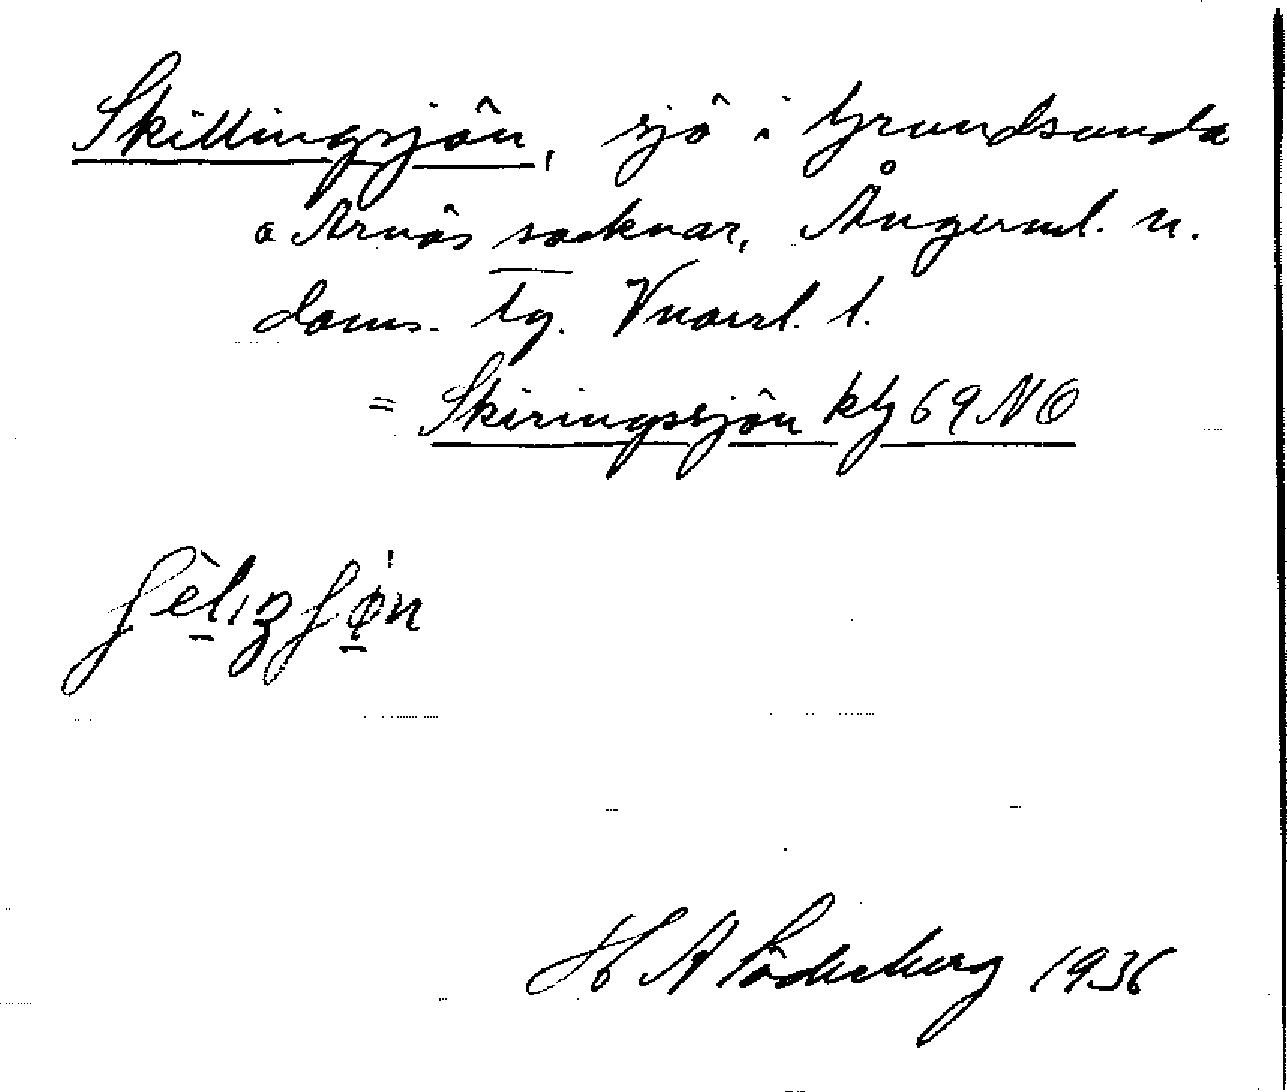 Skillingsjön, sjö i Grundsunda
o Arnäs socknar, Ångerml. n.
doms. tg. Vnorrl. l.
= Skiringssjön ktg 69 NO
ʃèlɪʒʃøn
H A Söderberg 1936